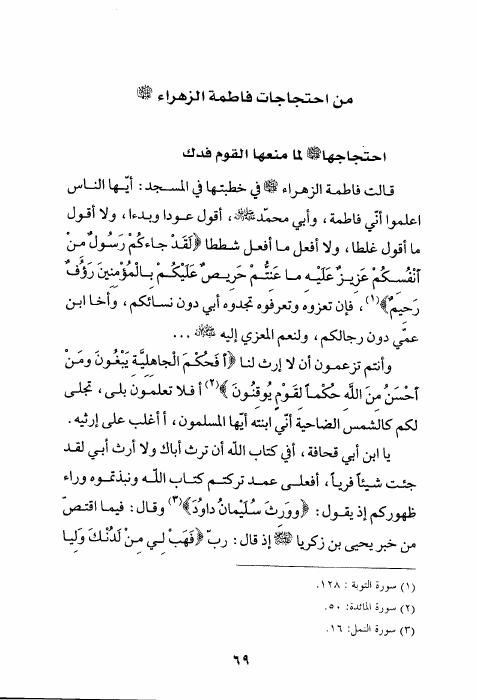 من احتجاجات فاطمة الزهراء
احتجاجها لما منعها القوم فدك
قالت فاطمة الزهراء في خطبتها في المسجد: أيّها الناس
اعلموا أنّي فاطمة، وأبي محمّد ﷺ، أقول عودا وبدءا، ولا أقول
ما أقول غلطا، ولا أفعل ما أفعل شططا ﴿لَقَدْ جاءكُمْ رَسُولٌ مِنْ
أنْفُسكُمْ عَزيزٌ عَلَيْه ما عَنتُّمْ حَريصٌ عَلَيكُمْ بِالمُؤْمِنينَ رَؤُفٌ
رَحيمٌ﴾(١)، فإن تعزوه وتعرفوه تجدوه أبي دون نسائكم، وأخا ابن
عمّي دون رجالكم، ولنعم المعزي إليه ﷺ ...
وأنتم تزعمون أن لا إرث لنا ﴿أفَحُكْمَ الجاهليَّة يَبْغُونَ وَمَنْ
أحْسَنُ مِنَ اللَّهِ حُكْماً لقَوْمٍ يُوقنُونَ﴾(٢) أفلا تعلمون بلى، تجلى
لكم كالشمس الضاحية أنّي ابنته أيّها المسلمون، أأغلب على إرثيه.
يا ابن أبي قحافة، أفي كتاب اللّه أن ترث أباك ولا أرث أبي لقد
جئت شيئاً فرياً، أفعلى عمد تركتم كتاب اللـه ونبذتموه وراء
ظهوركم إذ يقول: ﴿ووَرثَ سُلَيْمانُ داودُ﴾(٣) وقال: فيما اقتصّ
من خبر يحيى بن زكريا إذ قال: ربّ ﴿فَهَبْ لي مِنْ لَدُنْكَ وَليا
(١) سورة التوبة : ١٢٨.
(٢) سورة المائدة: ٥٠.
(٣) سورة النمل: ١٦.
٦٩